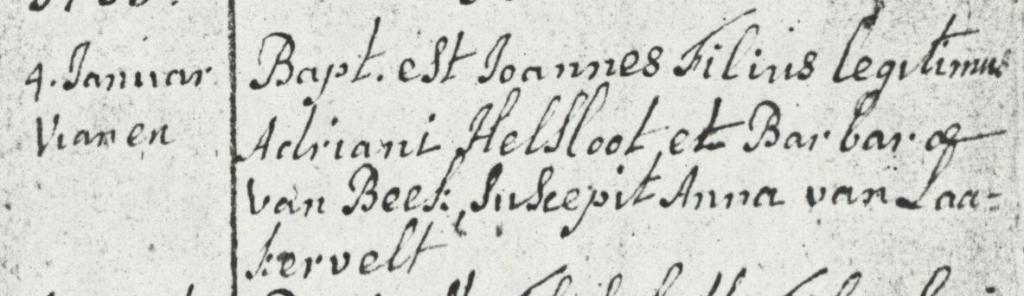 4. Januar
Vianen
Bapt. est Joannes Filius legitimus
Adriani Helsloot et Barbaræ
van Beek, Suscepit Anna van Laa=
kervelt